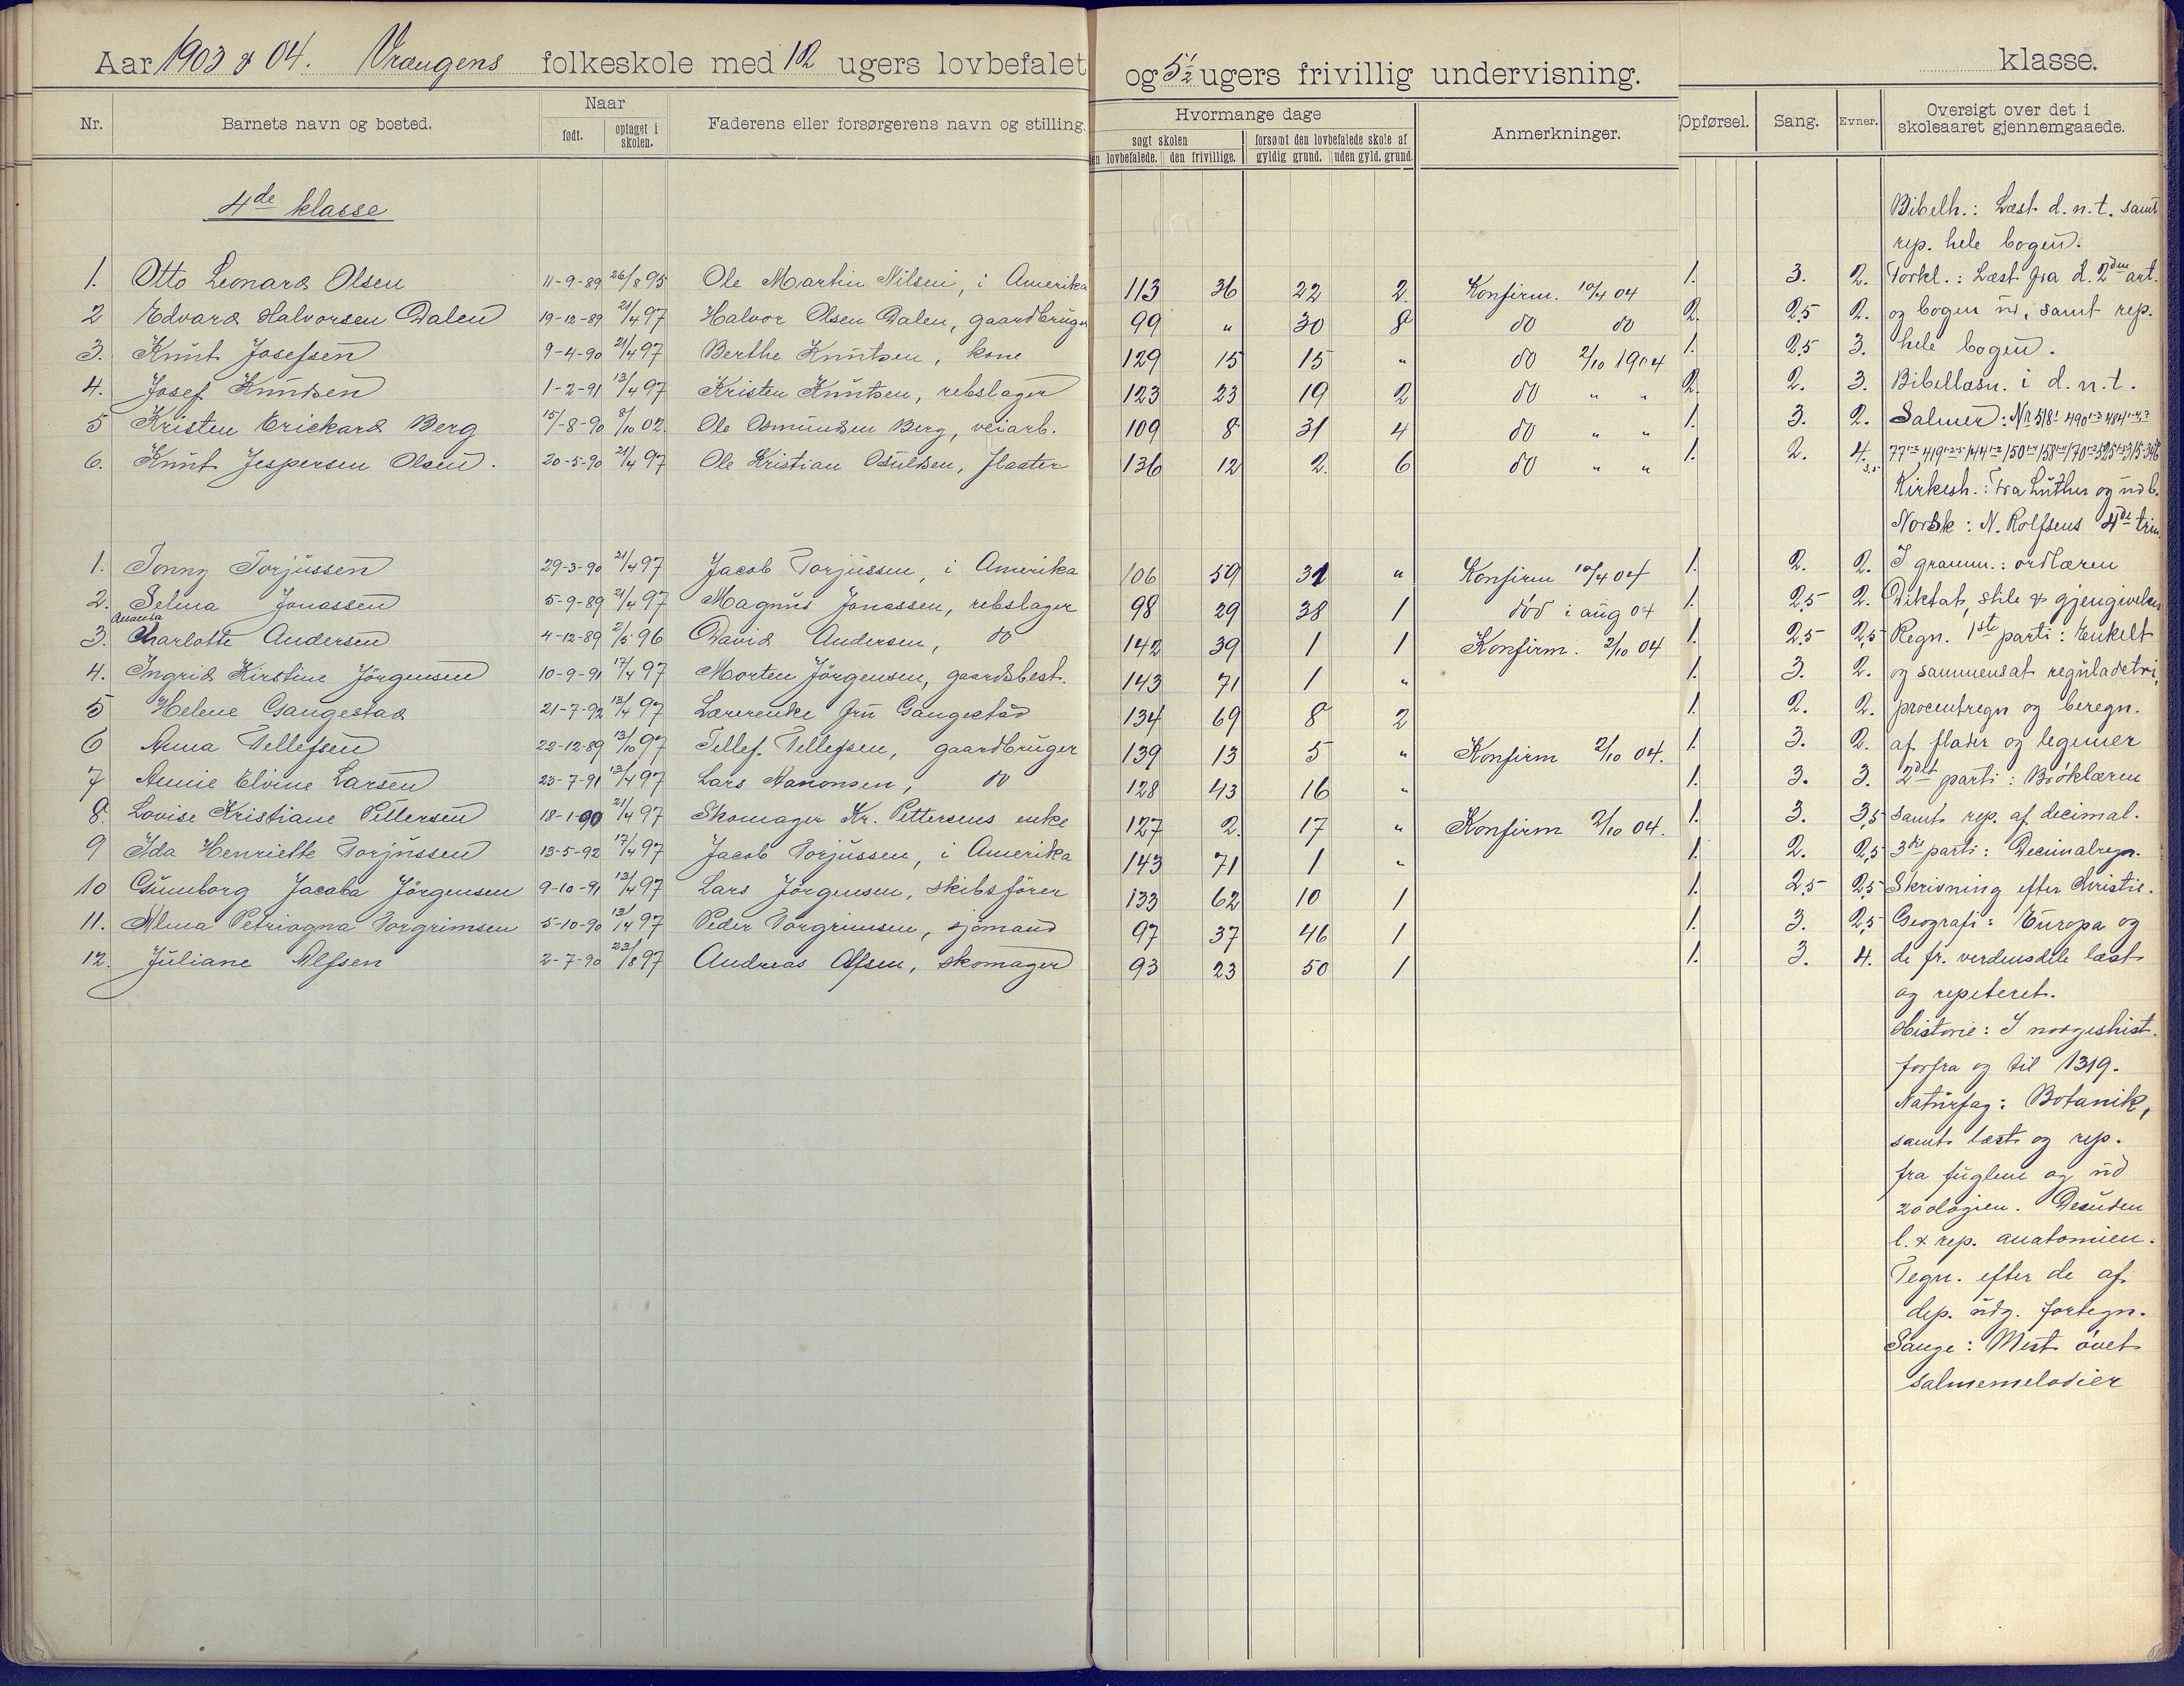 Aar 1903 & 04. Vrængens folkeskole med 12 ugers lovbefalet og 5½ ugers frivillig undervisning. klasse.
Nr. Barnets navn og bosted. Naar født. optaget i skolen. Faderens eller forsørgerens navn og stilling. Hvormange dage søgt skolen den lovbefalede. den frivillige. forsømt den lovbefalede skole af gyldig grund. uden gyld. grund. Anmerkninger. Opførsel. Sang. Evner. Oversigt over det i skoleaaret gjennemgaaede.
4de klasse
1. Otto Leonard Olsen 11-9-89 26/8 95 Ole Martin Nilsen, i Amerika 113 36 22 2. Konfirm. 10/4 04 1. 3. 2.
2 Edvard Halvorsen Dalen 19-12-89 21/4 97 Halvor Olsen Dalen, gaardbruger 99 " 30 8 do do 2. 2,5 2.
3. Knut Josefsen 9-4-90 21/4 97 Berthe Knutsen, kone 129 15 15 " do 2/10 1904 1. 2,5 3.
4. Josef Knudsen 1-2-91 13/4 97 Kristen Knutsen, rebslager 123 23 19 2 do " " 2. 2. 3.
5 Kristen Erickard Berg 15/-8-90 8/10 02. Ole Osmundsen Berg, veiarb. 109 8 31 4 do " " 1. 3. 2.
6. Knut Jespersen Olsen. 20-5-90 21/4 97 Ole Kristian Osuldsen, flaater 136 12 2. 6 do " " 1. 2. 4. 3,5
1. Jonny Torjussen 29-3-90 21/4 97 Jacob Torjussen, i Amerika 106 59 31 " Konfirm 10/4 04 1. 2. 2.
2. Selma Jonassen 5-9-89 21/4 97 Magnus Jonassen, rebslager 98 29 38 1 død i aug 04 1. 2,5 2.
Amanda
3. Charlotte Andersen 4-12-89 2/5 96 David Andersen, do 142 39 1 1 Konfirm. 2/10 04 1. 2,5 2,5
4. Ingrid Kirstine Jörgensen 10-9-91 17/4 97 Morten Jörgensen, gaardsbest. 143 71 1 " 1. 3. 2.
5 Helene Gangestad 21-7-92 13/4 97 Lærerenke fru Gangestad 134 69 8 2 1. 2. 2.
6 Anna Tellefsen 22-12-89 13/10 97 Tellef. Tellefsen, gaardbruger 139 13 5 " Konfirm 2/10 04. 1. 3. 2.
7 Annie Elvine Larsen 23-7-91 13/4 97 Lars Aanonsen, do 128 43 16 " 1. 3. 3.
8. Lovise Kristiane Pettersen 18-1-90 21/4 97 Skomager Kr. Pettersens enke 127 2. 17 " Konfirm 2/10 04. 1. 3. 3,5
9 Ida Henriette Torjussen 13-5-92 17/4 97 Jacob Torjussen, i Amerika 143 71 1 " 1. 2. 2,5
10 Gunborg Jacoba Jörgensen 9-10-91 13/4 97 Lars Jörgensen, skibsförer 133 62 10 1 1. 2,5 2,5
11. Alma Petriagna Torgrimsen 5-10-90 13/4 97 Peder Torgrimsen, sjömand 97 37 46 1 1. 3. 2,5
12. Juliane Alfsen 2-7-90 23/8 97 Andreas Alfsen, skomager 93 23 50 1 1. 3. 4.
Bibelh.: Læst d. n. t. samt
rep. hele bogen.
Forkl.: Læst fra d. 2den art.
og bogen ud, samt rep.
hele bogen.
Bibellæsn. i d. n. t.
Salmer: Nr 518
Kirkesh.: Fra Luther og ud b.
Norsk: N. Rolfsens 4de trin
I gramm.: ordlæren
Diktat, stile & gjengivelser
Regn. 1ste parti: Enkelt
og sammensat reguladetri,
procentregn og beregn.
af flader og legemer
2det parti: Bröklæren
samt rep. af decimal.
3die parti: Decimalregn.
Skrivning efter Christie.
Geografi: Europa og
de fr. verdensdele læst
og repeteret.
Historie: I norgeshist.
forfra og til 1319.
Naturfag: Botanik,
samt læst og rep.
fra fuglene og ud
zoologien. Desuden
l. & rep. anatomien.
Tegn. efter de af
dep. udg. fortegn.
Sange: Mest øvet
salmemelodier